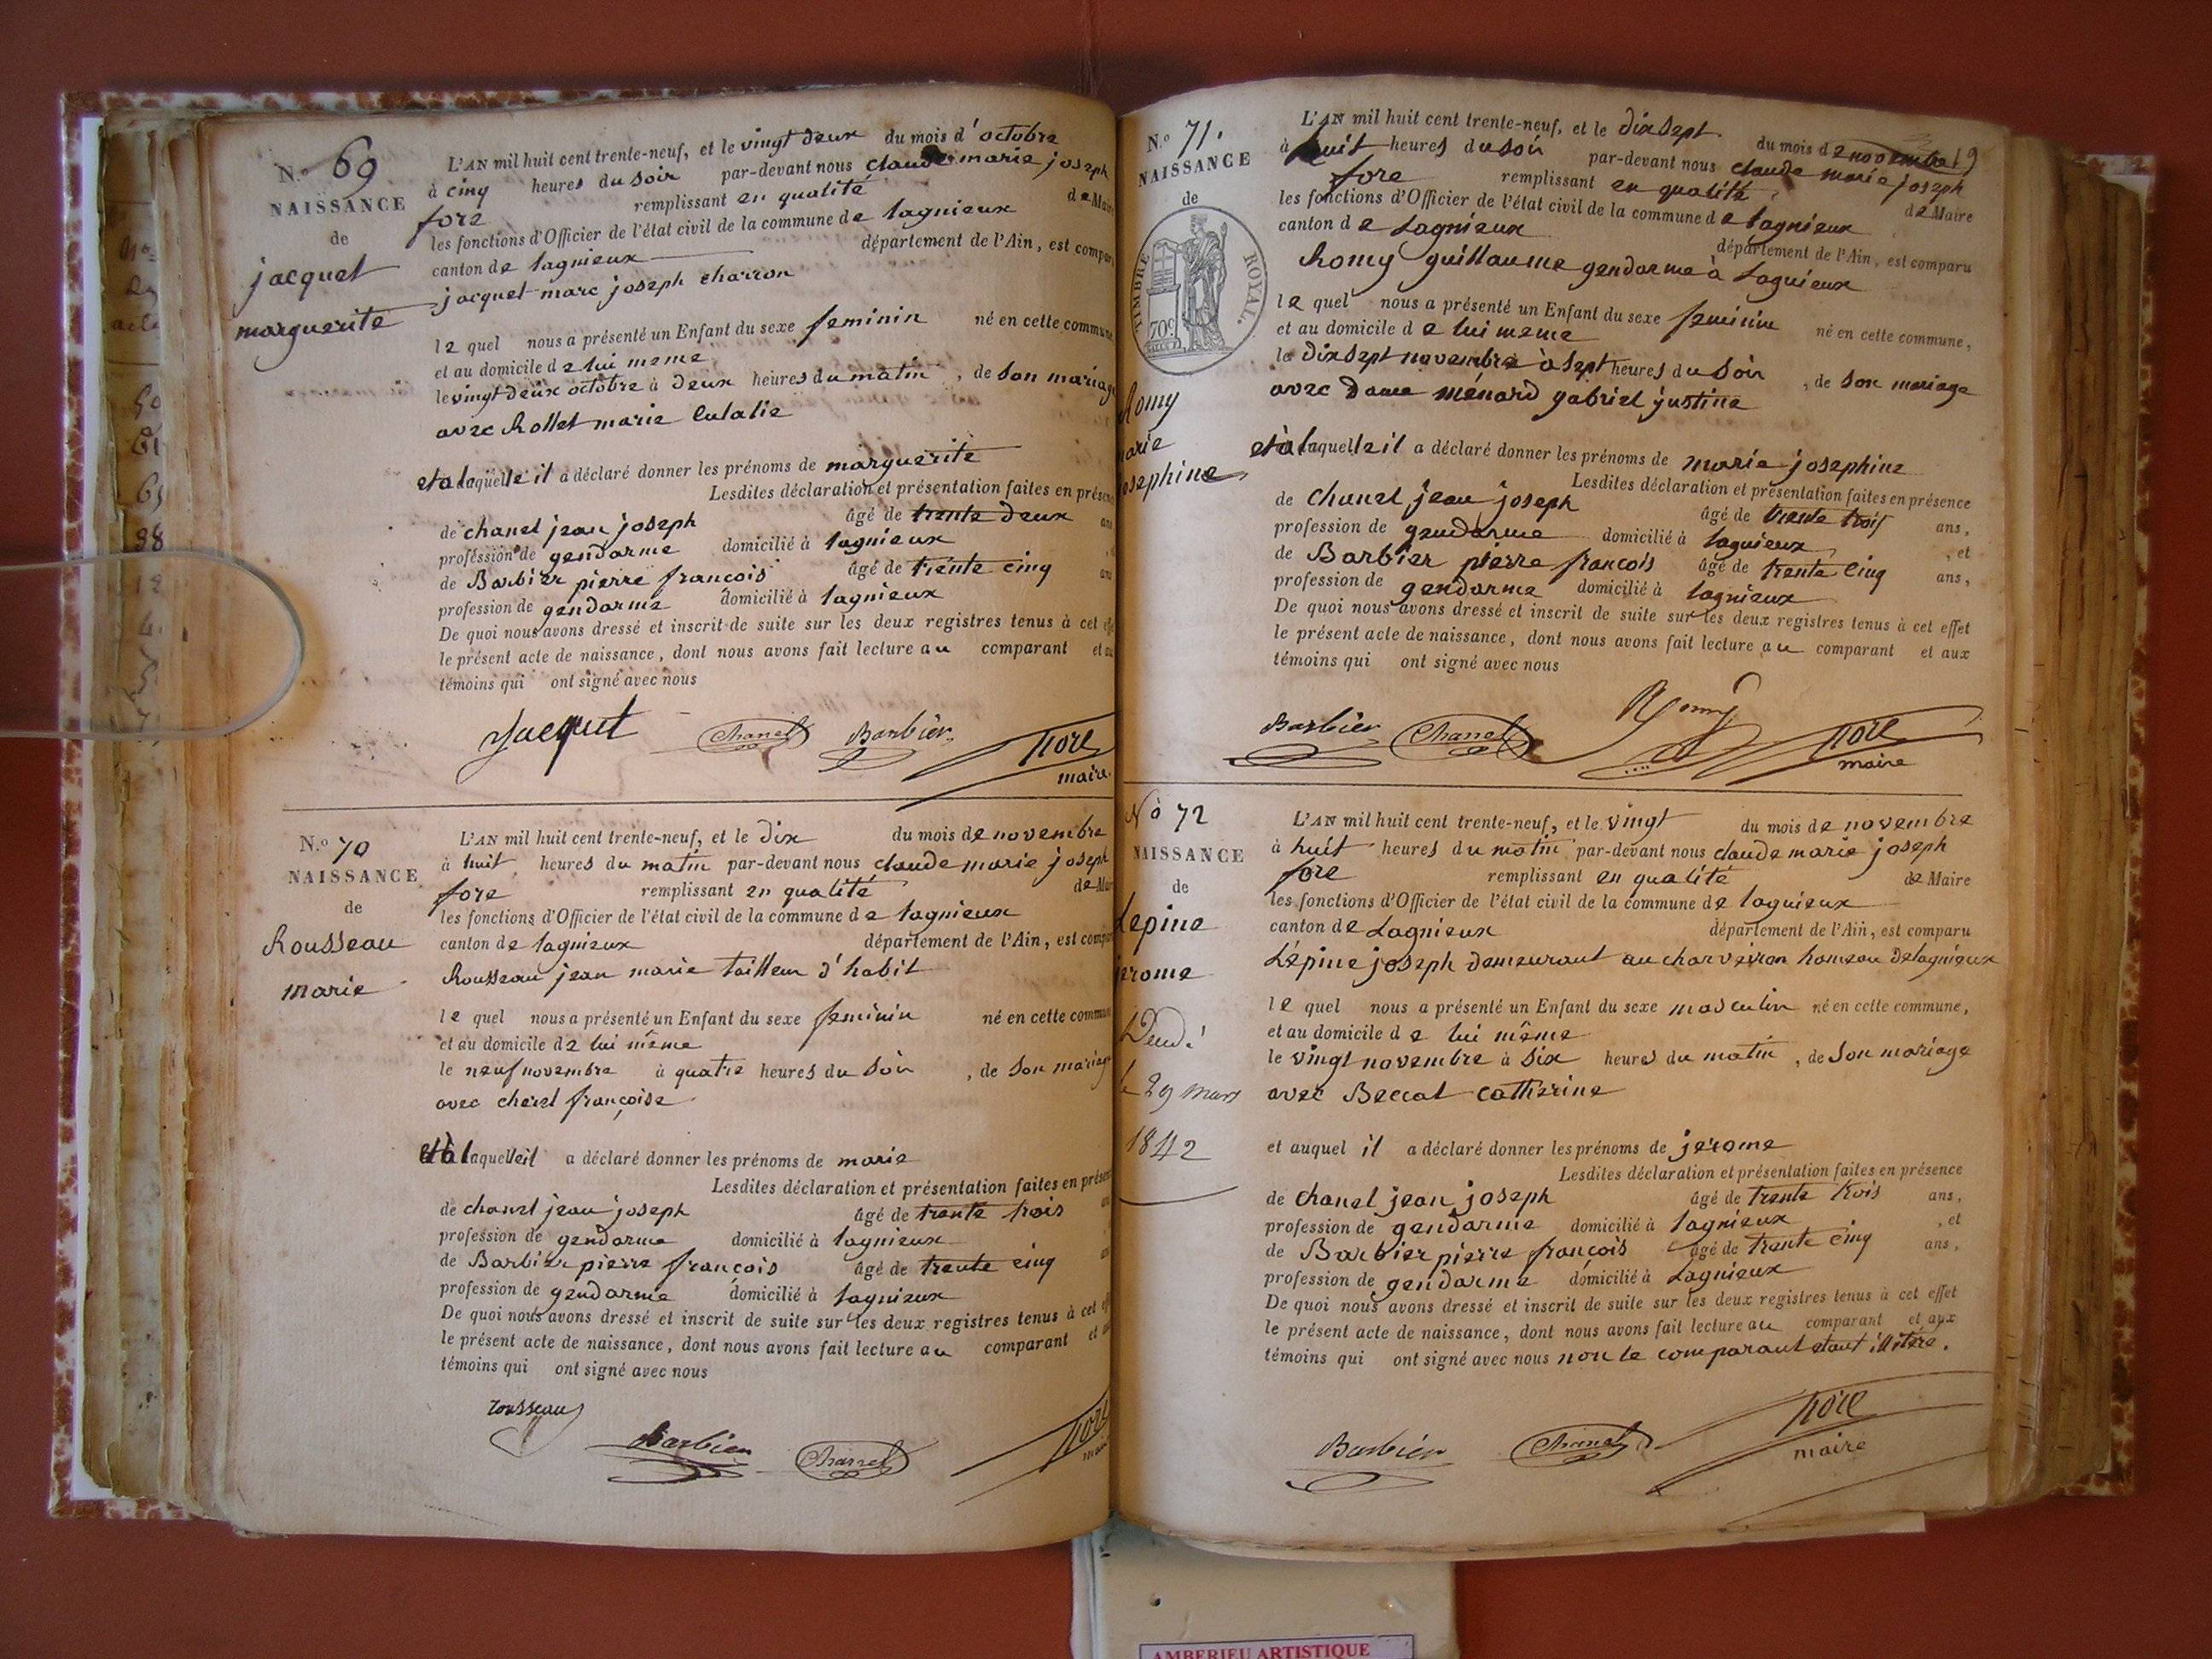 N.o 69
NAISSANCE
de
jacquet
marguerite
L'AN mil huit cent trente-neuf, et le vingt deux du mois d'octobre
à cinq heures du soir par-devant nous claude marie joseph
fore remplissant en qualité de Maire
les fonctions d'Officier de l'état civil de la commune de lagnieux
canton de lagnieux département de l'Ain, est compar
jacquet marc joseph charron
le quel nous a présenté un Enfant du sexe feminin né en cette commune
et au domicile de lui meme
le vingt deux octobre à deux heures du matin, de son mariage
avec Rollet marie Eulalie
et a laquelle il a déclaré donner les prénoms de marguerite
Lesdites déclaration et présentation faites en présen
de chanel jean joseph âgé de trente deux ans
profession de gendarme domicilié à lagnieux
de Barbier pierre francois âgé de trente cinq ans
profession de gendarme domicilié à lagnieux
De quoi nous avons dressé et inscrit de suite sur les deux registres tenus à cet effe
le présent acte de naissance, dont nous avons fait lecture au comparant et au
témoins qui ont signé avec nous
Jacquet Chanel Barbier fore
maire
N.o 70
NAISSANCE
de
Rousseau
marie
L'AN mil huit cent trente-neuf, et le dix du mois de novembre
à huit heures du matin par-devant nous claude marie joseph
fore remplissant en qualité de Mair
les fonctions d'Officier de l'état civil de la commune de lagnieux
canton de lagnieux département de l'Ain, est compar
Rousseau jean marie tailleur d'habit
le quel nous a présenté un Enfant du sexe feminin né en cette commun
et au domicile de lui même
le neuf novembre à quatre heures du soir, de son mariage
avec cherel françoise
et à laquelle il a déclaré donner les prénoms de marie
Lesdites déclaration et présentation faites en présen
de chanel jean joseph âgé de trente trois
profession de gendarme domicilié à lagnieux
de Barbier pierre francois âgé de trente cinq
profession de gendarme domicilié à lagnieux
De quoi nous avons dressé et inscrit de suite sur les deux registres tenus à cet eff
le présent acte de naissance, dont nous avons fait lecture au comparant et au
témoins qui ont signé avec nous
rousseau Barbier Chanel fore
maire
N.o 71.
NAISSANCE
de
TIMBRE ROYAL.
70c
Romy
marie
josephine
L'AN mil huit cent trente-neuf, et le dix sept du mois de novembre
à huit heures du soir par-devant nous claude marie joseph
fore remplissant en qualité de Maire
les fonctions d'Officier de l'état civil de la commune de lagnieux
canton de Lagnieux département de l'Ain, est comparu
Romy guillaume gendarme à Lagnieux
le quel nous a présenté un Enfant du sexe feminin né en cette commune,
et au domicile de lui meme
le dix sept novembre à sept heures du soir, de son mariage
avec dame ménard gabriel justine
et à laquelle il a déclaré donner les prénoms de marie josephine
Lesdites déclaration et présentation faites en présence
de chanel jean joseph âgé de trente trois ans,
profession de gendarme domicilié à lagnieux, et
de Barbier pierre francois âgé de trente cinq ans,
profession de gendarme domicilié à lagnieux
De quoi nous avons dressé et inscrit de suite sur les deux registres tenus à cet effet
le présent acte de naissance, dont nous avons fait lecture au comparant et aux
témoins qui ont signé avec nous
Barbier Chanel Romy fore
maire
No 72
NAISSANCE
de
Lepine
jerome
Décd.
le 29 mars
1842
L'AN mil huit cent trente-neuf, et le vingt du mois de novembre
à huit heures du matin par-devant nous claude marie joseph
fore remplissant en qualité de Maire
les fonctions d'Officier de l'état civil de la commune de lagnieux
canton de Lagnieux département de l'Ain, est comparu
Lépine joseph demeurant au charveiron hameau de lagnieux
le quel nous a présenté un Enfant du sexe masculin né en cette commune,
et au domicile de lui même
le vingt novembre à six heures du matin, de son mariage
avec Beccat catherine
et auquel il a déclaré donner les prénoms de jérome
Lesdites déclaration et présentation faites en présence
de chanel jean joseph âgé de trente trois ans,
profession de gendarme domicilié à lagnieux, et
de Barbier pierre francois âgé de trente cinq ans,
profession de gendarme domicilié à Lagnieux
De quoi nous avons dressé et inscrit de suite sur les deux registres tenus à cet effet
le présent acte de naissance, dont nous avons fait lecture au comparant et aux
témoins qui ont signé avec nous non le comparant etant illitéré.
Barbier Chanel fore
maire
AMBERIEU ARTISTIQUE